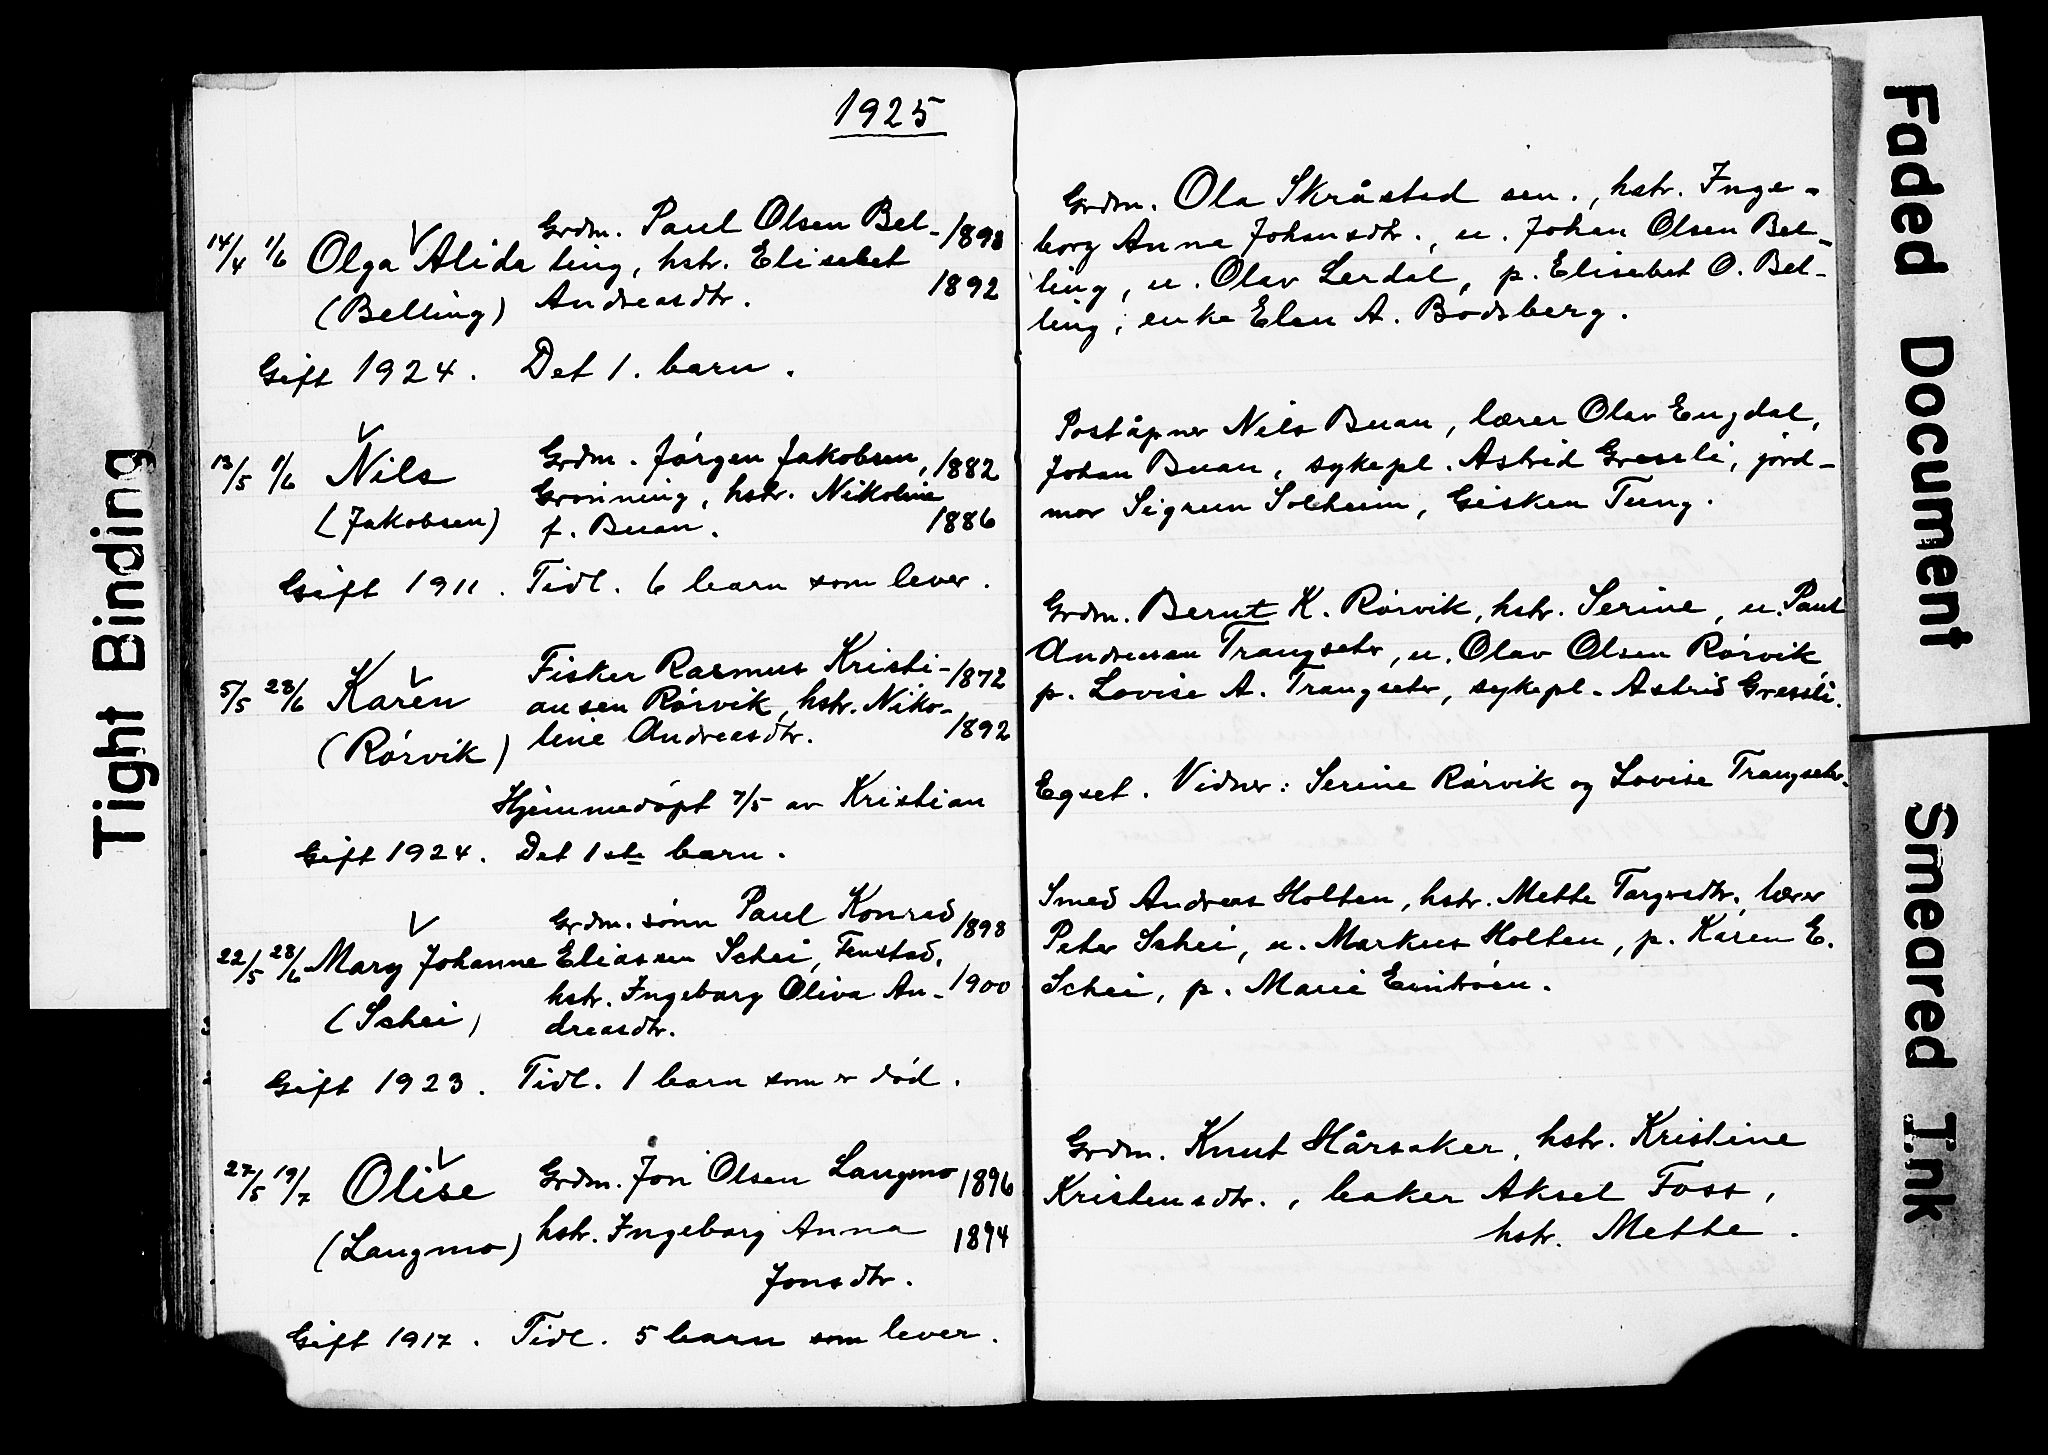 1925
14/4 1/6 Olga Alida
(Belling)
Grdm. Paul Olsen Bel- 1898
ling, hstr. Elisabet
Andreasdtr. 1892
Gift 1924. Det 1. barn.
13/5 1/6 Nils
(Jakobsen)
Grdm. Jørgen Jakobsen, 1882
Grønning, hstr. Nikoline
f. Buan. 1886
Gift 1911. Tidl. 6 barn som lever.
5/5 28/6 Karen
(Rørvik)
Fisker Rasmus Kristi- 1872
ansen Rørvik, hstr. Niko-
line Andreasdtr. 1892
Hjemmedøpt 7/5 av Kristian
Gift 1924. Det 1ste barn.
22/5 28/6 Mary Johanne
(Schei)
Grdm. sønn Paul Konrad 1898
Eliassen Schei, Fenstad,
hstr. Ingeborg Oliva An- 1900
dreasdtr.
Gift 1923. Tidl. 1 barn som er død.
27/5 19/7 Olise
(Langmo)
Grdm. Jon Olsen Langmo 1896
hstr. Ingeborg Anna 1894
Jonsdtr.
Gift 1917. Tidl. 5 barn som lever.
Grdm. Ola Skråstad sen., hstr. Inge-
borg Anna Johansdtr., u. Johan Olsen Bel-
ling, u. Olav Lerdal, p. Elisabet O. Bel-
ling, enke Elen A. Bodsberg.
Poståpner Nils Buan, lærer Olav Engdal,
Johan Buan, sykepl. Astrid Gressli, jord-
mor Sigrun Solheim, Gisken Tung.
Grdm. Bernt K. Rørvik, hstr. Serine, u. Paul
Andreasen Trangseter, u. Olav Olsen Rørvik
p. Lovise A. Trangseter, sykepl. Astrid Gressli.
Egset. Vidner: Serine Rørvik og Lovise Trangseter.
Smed Andreas Holten, hstr. Mette Torgersdtr. lærer
Peter Schei, u. Markus Holten, p. Karen E.
Schei, p. Marie
Grdm. Knut Hårsaker, hstr. Kristine
Kristensdtr., baker Aksel Foss,
hstr. Mette.
Tight Binding
Faded Document
Smeared Ink